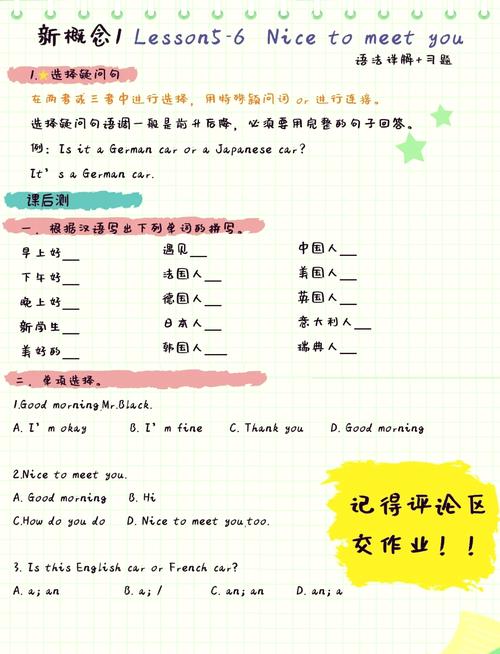 新概念1 Lesson5-6 Nice to meet you
语法详解+习题
1.选择疑问句
在两者或三者中进行选择，用特殊疑问词 or 进行连接。
选择疑问句语调一般是前升后降，必须要用完整的句子回答。
例：Is it a German car or a Japanese car?
It's a German car.
课后测
一．根据汉语写出下列单词的拼写。
早上好___ 遇见___ 中国人___
下午好___ 法国人___ 美国人___
晚上好___ 德国人___ 英国人___
新学生___ 日本人___ 意大利人___
美好的___ 韩国人___ 瑞典人___
二．单项选择。
1.Good morning,Mr.Black.
A. I'm okay B. I'm fine C. Thank you D. Good morning
2.Nice to meet you.
A. Good morning B. Hi
C.How do you do D. Nice to meet you,too.
3. Is this English car or French car?
A. a; an B. a; / C. an; an D. an; a
记得评论区
交作业！！